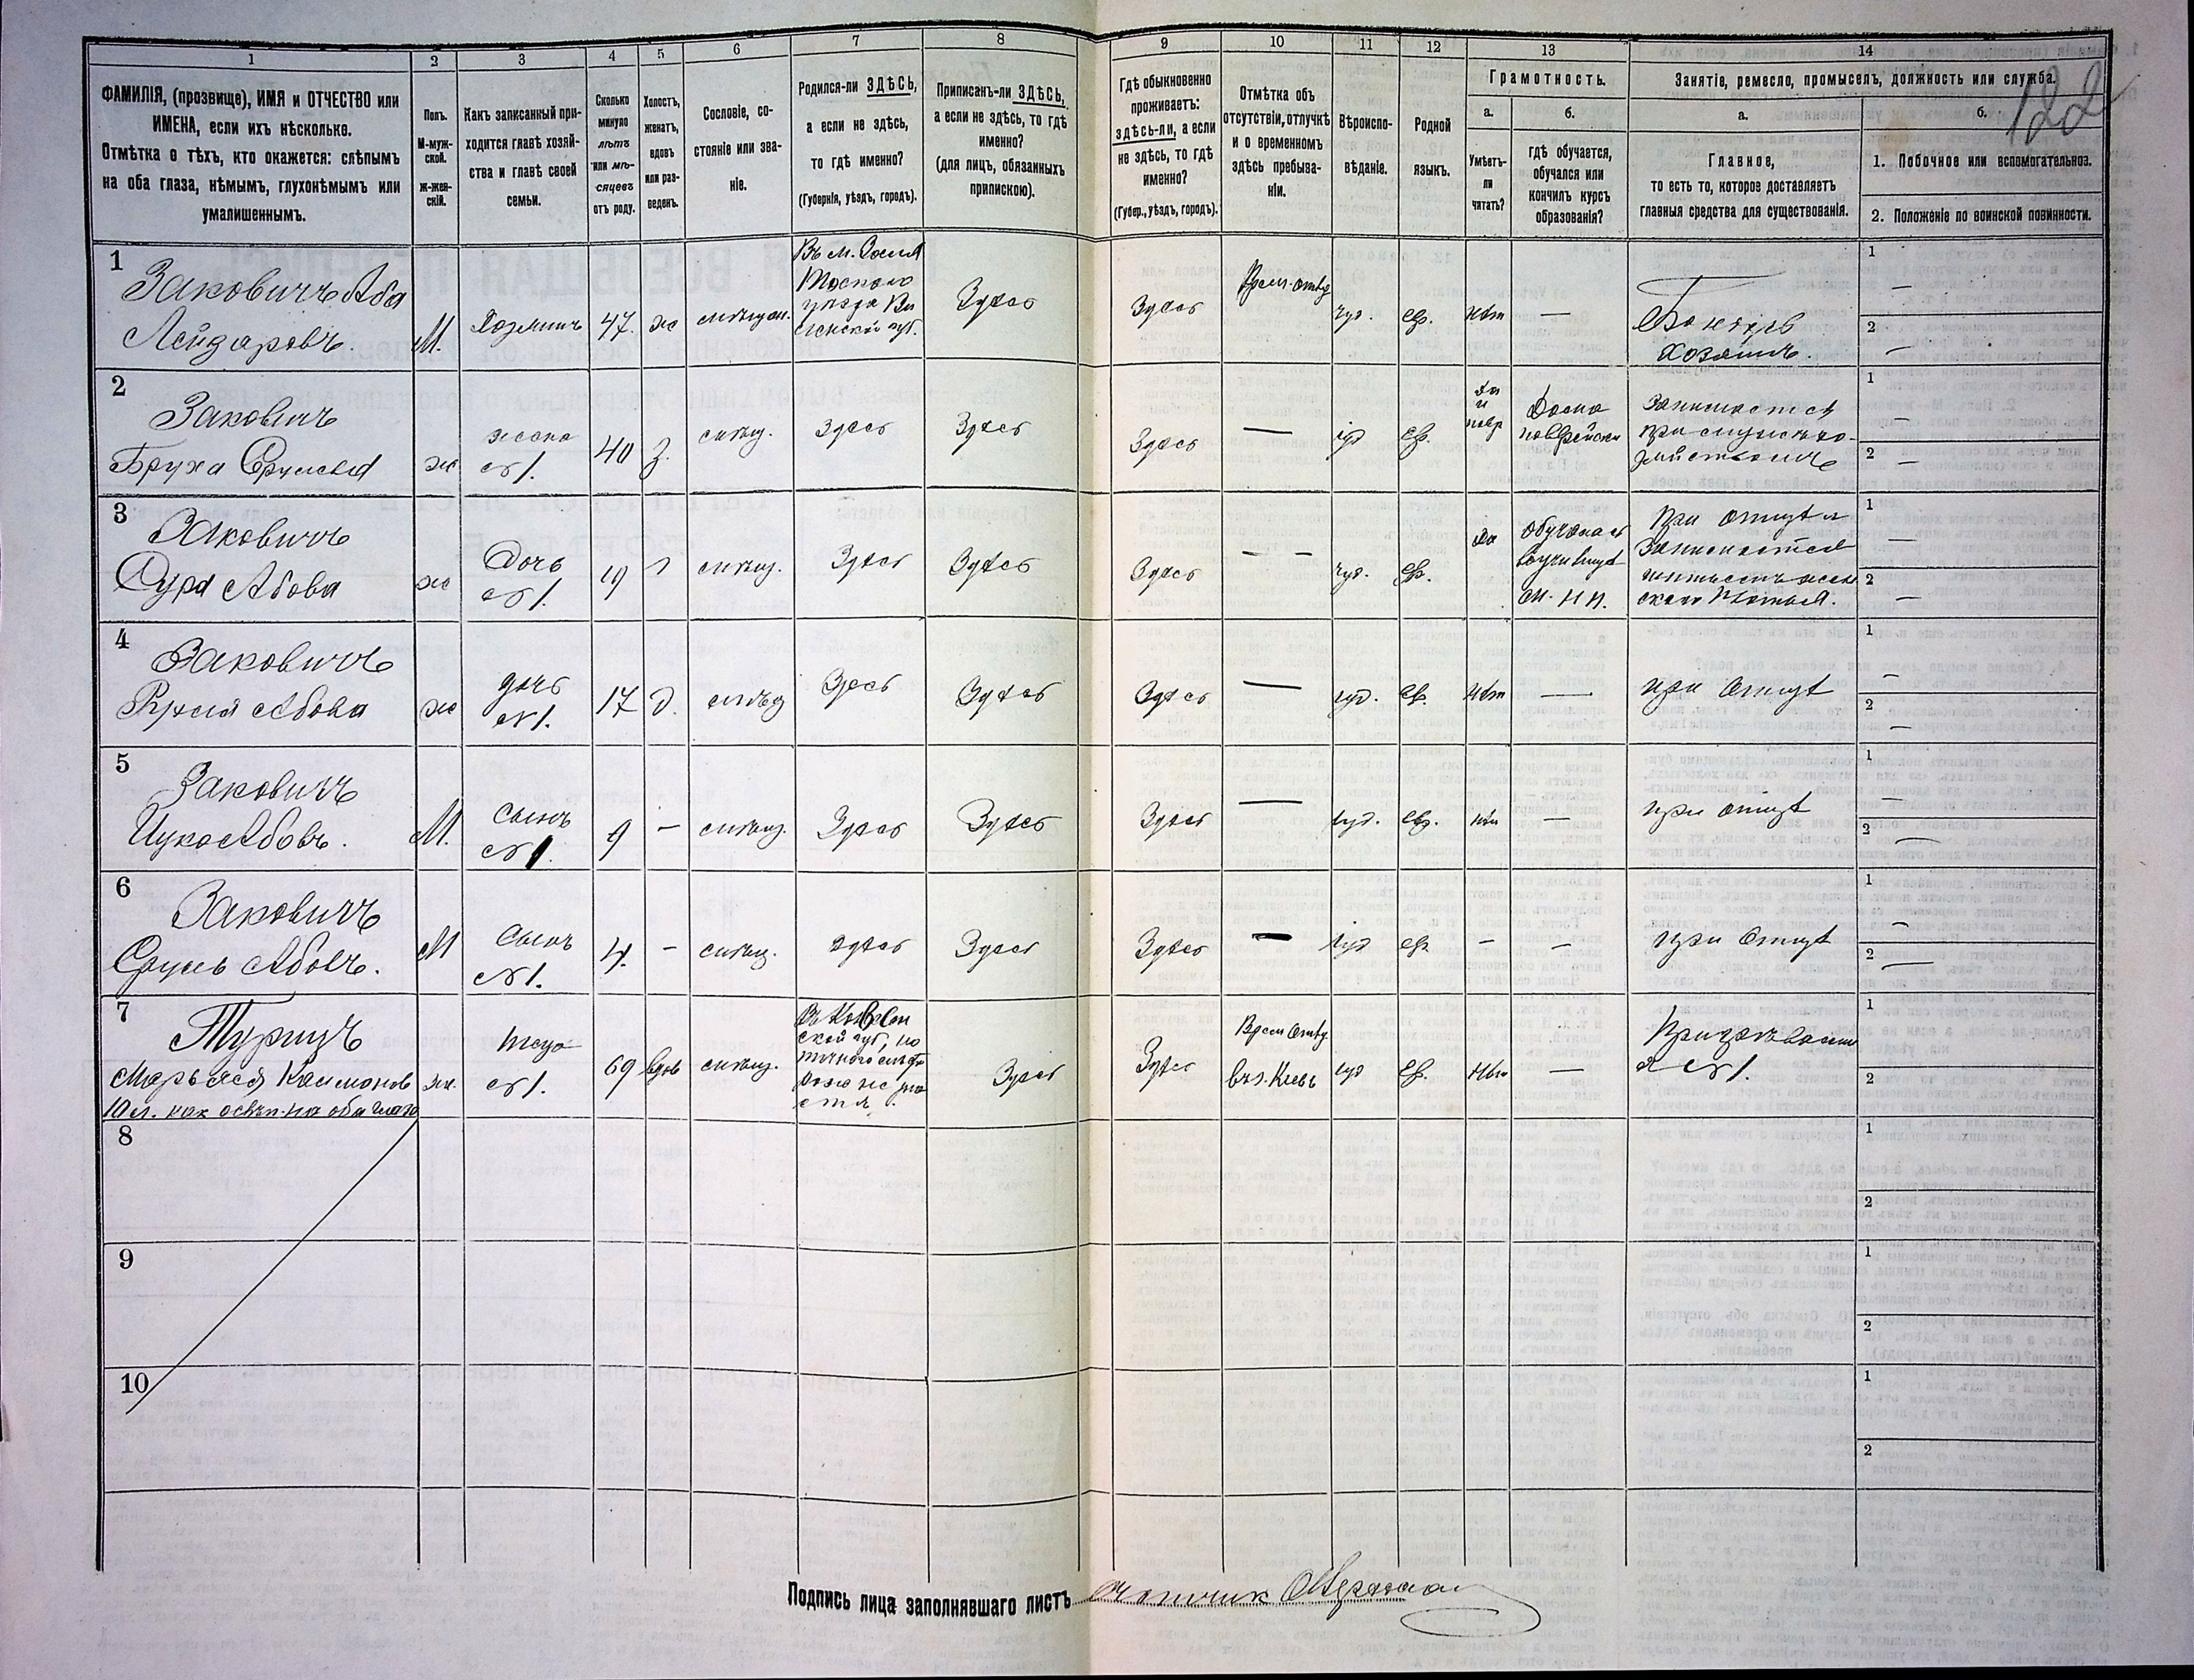 122
1
2
3
4
5
6
7
8
9
10
11
12
13
14
ФАМИЛІЯ, (прозвище), ИМЯ и ОТЧЕСТВО или
ИМЕНА, если ихъ нѣсколько.
Отмѣтка о тѣхъ, кто окажется: слѣпымъ
на оба глаза, нѣмымъ, глухонѣмымъ или
умалишеннымъ.
Полъ.
М-муж-
ской.
ж-жен-
скій.
Какъ записанный при-
ходится главѣ хозяй-
ства и главѣ своей
семьи.
Сколько
минуло
лѣтъ
или мѣ-
сяцевъ
отъ роду.
Холостъ,
женатъ,
вдовъ
или раз-
веденъ.
Сословіе, со-
стояніе или зва-
ніе.
Родился-ли ЗДѢСЬ,
а если не здѣсь,
то гдѣ именно?
(Губернія, уѣздъ, городъ).
Приписанъ-ли ЗДѢСЬ,
а если не здѣсь, то гдѣ
именно?
(для лицъ, обязанныхъ
припискою).
Гдѣ обыкновенно
проживаетъ:
здѣсь-ли, а если
не здѣсь, то гдѣ
именно?
(Губер., уѣздъ, городъ).
Отмѣтка объ
отсутствіи, отлучкѣ
и о временномъ
здѣсь пребыва-
ніи.
Вѣроиспо-
вѣданіе.
Родной
языкъ.
Грамотность.
а.
Умѣетъ-
ли
читать?
б.
гдѣ обучается,
обучался или
кончилъ курсъ
образованія?
Занятіе, ремесло, промыселъ, должность или служба.
а.
Главное,
то есть то, которое доставляетъ
главныя средства для существованія.
б.
1. Побочное или вспомогательное.
2. Положеніе по воинской повинности.
1
Заковичъ Аба
Лейзаровъ.
М.
Хозяинъ
47.
ж
мѣщан.
Здѣсь
Здѣсь
Врем. отв
іуд.
евр.
нѣт
—
хозяинъ.
1
—
2
—
2
Заковичъ
Бруха Срулева
ж
жена
№1.
40
з.
мѣщ.
Здѣсь
Здѣсь
Здѣсь
—
іуд
евр.
Да
и
Дома
Занимается
1
—
2
—
3
Заковичъ
Сура Абова
ж
Дочь
№1.
19
мѣщ.
Здѣсь
Здѣсь
Здѣсь
— —
іуд.
евр.
да
при отцѣ и
занимается
1
—
2
—
4
Заковичъ
Абова
ж
дочь
№1.
17
д.
мѣщ
Здѣсь
Здѣсь
Здѣсь
—
іуд.
ев.
нѣт
—
при отцѣ
1
—
2
—
5
Заковичъ
Ицко Абовъ.
М.
Сынъ
№1.
9
–
мѣщ.
Здѣсь
Здѣсь
Здѣсь
—
іуд.
евр.
—
при отцѣ
1
—
2
—
6
Заковичъ
Сруль Абовъ.
М
Сынъ
№1.
4.
–
мѣщ.
здѣсь
Здѣсь
Здѣсь
–
іуд
евр
–
–
при отцѣ
1
—
2
—
7
Турицъ
Марьяся
ж.
теща
№1.
69
вдов
мѣщ.
Здѣсь
Здѣсь
Врем отв
въ г. Кіевѣ
іуд
ев.
нѣт
—
№1.
1
2
8
1
2
9
1
2
10
1
2
Подпись лица заполнявшаго листъ